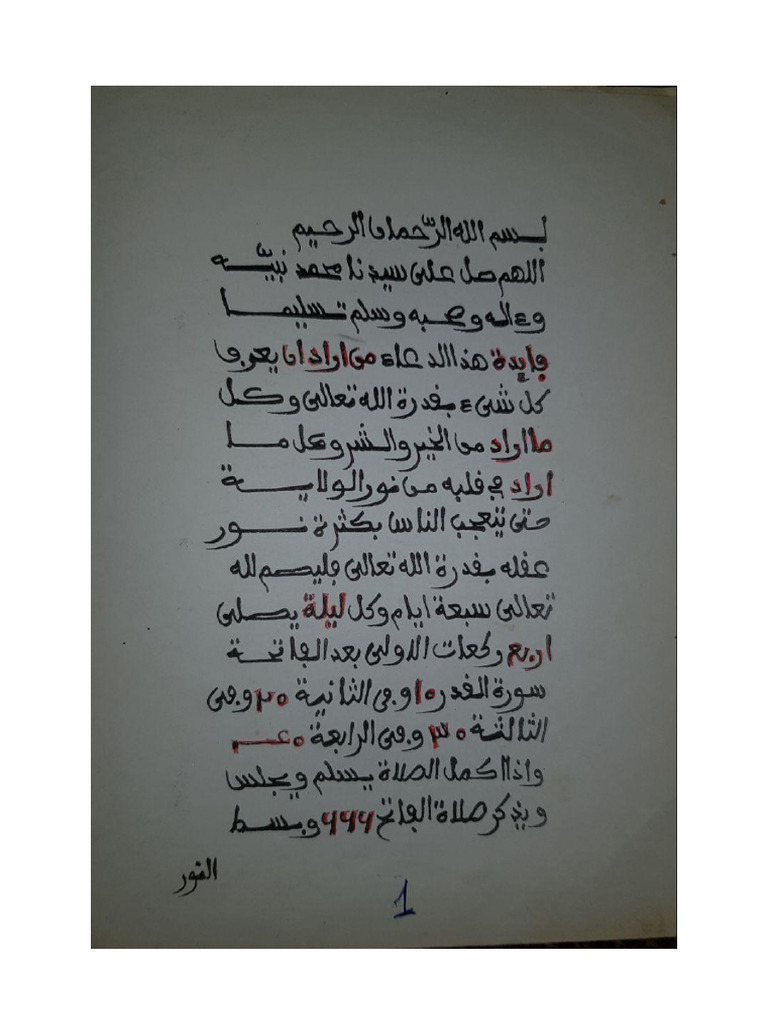 بسم الله الرّحمان الرحيم
اللهم صل على سيدنا محمد نبيّه
وءاله وصحبه وسلم تسليما
فايدة هذا الدعاء من اراد ان يعرف
كل شيء بقدرة الله تعالى وكل
ما اراد من الخير والشر وكل ما
اراد في قلبه من نور الولاية
حتى تتعجب الناس بكثرة نور
عقله بقدرة الله تعالى فليصم لله
تعالى سبعة ايام وكل ليلة يصلى
اربع ركعات الاولى بعد الفاتحة
سورة القدر ١٠ وفي الثانية ٢٠ وفى
الثالثة ٣٠ وفى الرابعة ٤٠
واذا اكمل الصلاة يسلم ويجلس
ويذكر صلاة الفاتح ٦٦٦ وبسط
النور
1